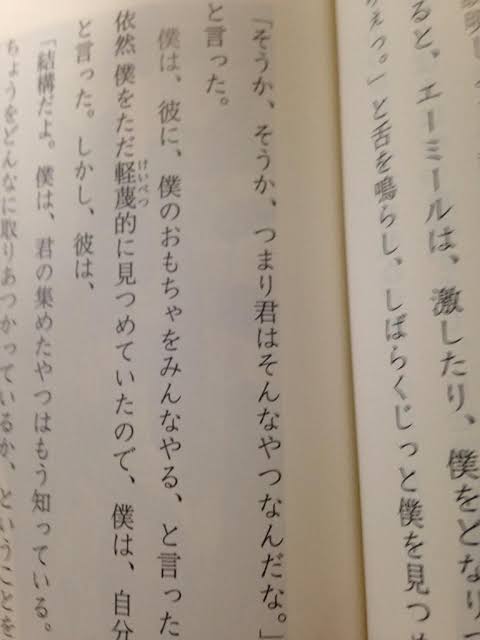 ると、エーミールは、激したり、僕をどなり
えっ。」と舌を鳴らし、しばらくじっと僕を見つ
「そうか、そうか、つまり君はそんなやつなんだな。」
と言った。
僕は、彼に、僕のおもちゃをみんなやる、と言った
依然僕をただ軽蔑的に見つめていたので、僕は、自分
けいべつ
と言った。しかし、彼は、
「結構だよ。僕は、君の集めたやつはもう知っている。
ちょうをどんなに取りあつかっているか、ということを